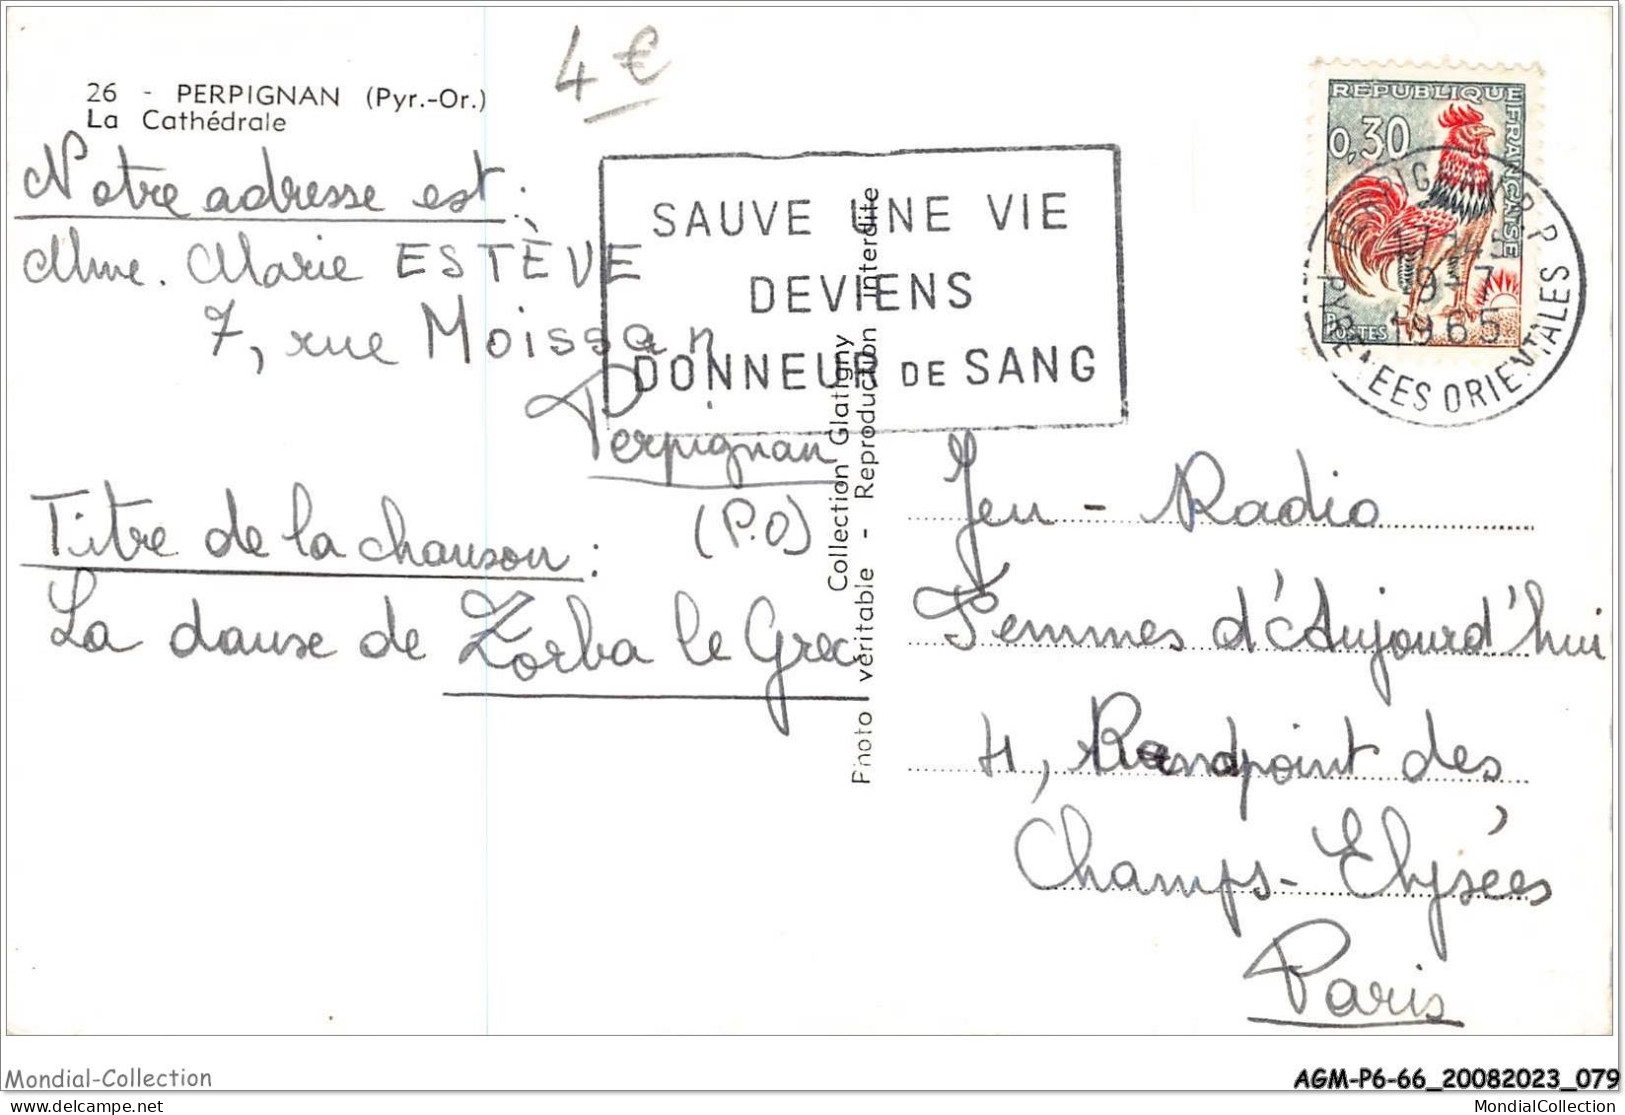 26 - PERPIGNAN (Pyr.-Or.)
La Cathédrale
4 €
Notre adresse est :
Mme. Marie ESTÈVE
7, rue Moissan
Perpignan
(P.O)
Titre de la chanson :
La danse de Zorba le Grec
SAUVE UNE VIE
DEVIENS
DONNEUR DE SANG
Collection Glatigny
Photo véritable - Reproduction interdite
REPUBLIQUE FRANÇAISE
0,30
POSTES
PERPIGNAN R.P
19-7
1965
PYRENEES ORIENTALES
Jeu - Radio
Femmes d'Aujourd'hui
Rondpoint des
Champs-Elysées
Paris
Mondial-Collection
AGM-P6-66_20082023_079
delcampe.net
MondialCollection